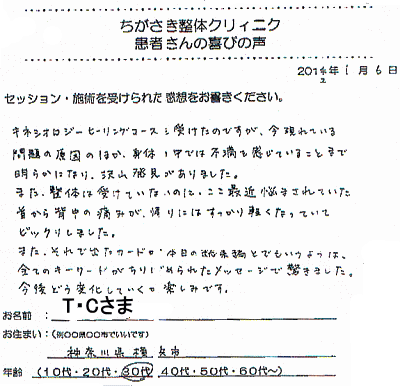 ちがさき整体クリィニク
患者さんの喜びの声
年1月6日
セッション・施術を受けられた感想をお書きください。
キネシオロジーヒーリングコースを受けたのですが、今現れている
問題の原因のほか、身体の中では不満を感じていることまで
明らかになり、沢山発見がありました。
また、整体は受けていないのに、ここ最近悩まされていた
首から背中の痛みが、帰りにはすっかり軽くなっていて
ビックリしました。
また、それで出たワードが本日の総集編とでもいうような、
全てのキーワードがちりばめられたメッセージで驚きました。
今後どう変化していくか楽しみです。
お名前 : T・Cさま
お住まい:(例○○県○○市でいいです)
神奈川県横浜市
年齢 (10代・20代・30代・40代・50代・60代～)